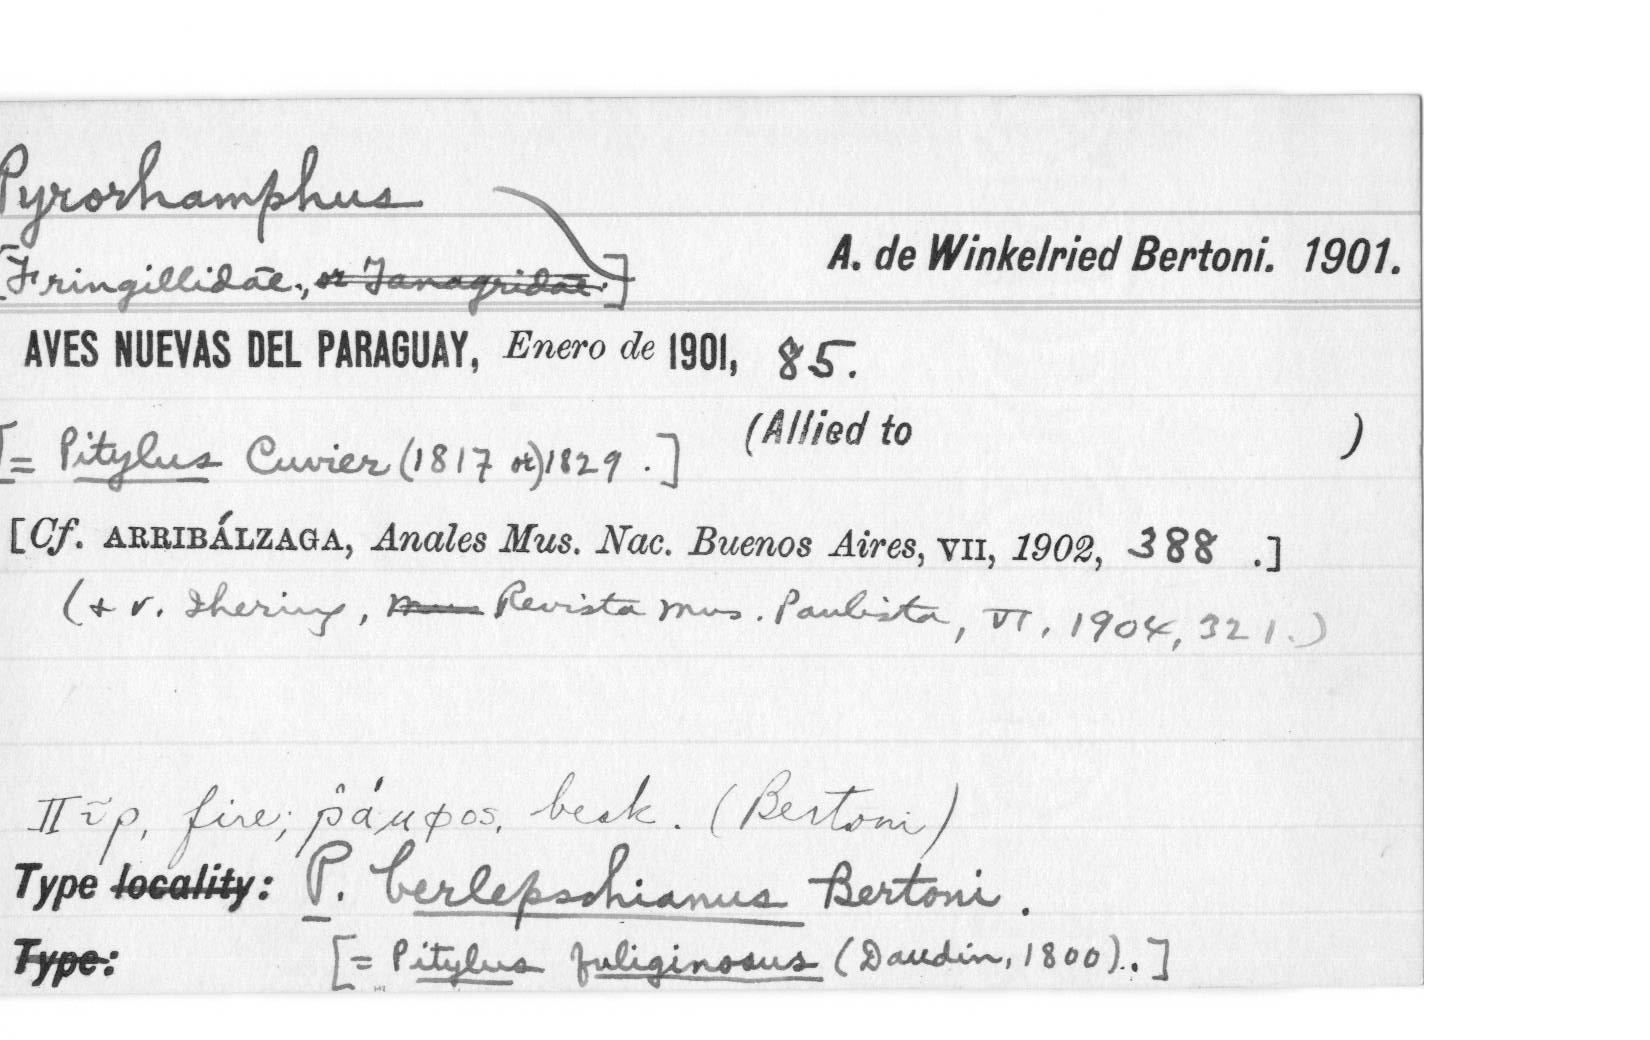 Pyrorhamphus
[Fringillidae., or Tanagridae.]
A. de Winkelried Bertoni. 1901.
AVES NUEVAS DEL PARAGUAY, Enero de 1901, 85.
(Allied to )
[= Pitylus Cuvier (1817 or) 1829.]
[Cf. ARRIBÁLZAGA, Anales Mus. Nac. Buenos Aires, VII, 1902, 388 .]
(& v. Ihering, Mus Revista Mus. Paulista, VI, 1904, 321.)
Πῦρ, fire; ῥάμφος, beak. (Bertoni)
Type locality: P. berlepschianus Bertoni.
Type: [= Pitylus fuliginosus (Daudin, 1800).]